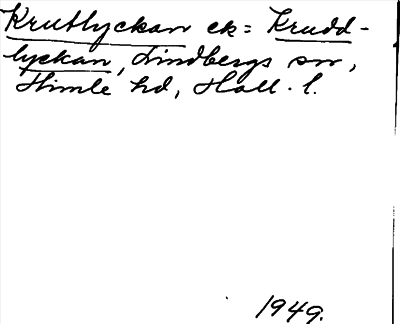 Krutlyckan ek = Krudd-
lyckan, Lindbergs sn,
Himle hd, Hall. l.
1949.